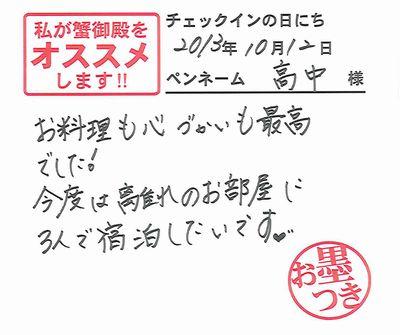 私が蟹御殿を
オススメ
します!!
チェックインの日にち
2013年10月12日
ペンネーム 高中 様
お料理も心づかいも最高
でした!
今度は離れのお部屋に
3人で宿泊したいです♥
お墨つき